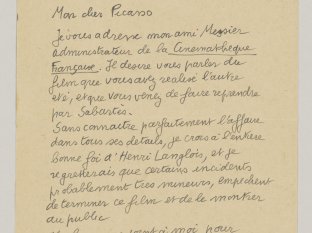 Mon cher Picasso
Je vous adresse mon ami Messier
administrateur de la Cinemathèque
Française. Il desire vous parler du
film que vous avez realisé l'autre
eté, et que vous venez de faire reprendre
par Sabartès.
Sans connaitre parfaitement l'affaire
dans tous ses details, je crois à l'entiere
bonne foi d'Henri Langlois, et je
regretterais que certains incidents
probablement tres mineurs, empechent
de terminer ce film et de le montrer
au public
moi pour